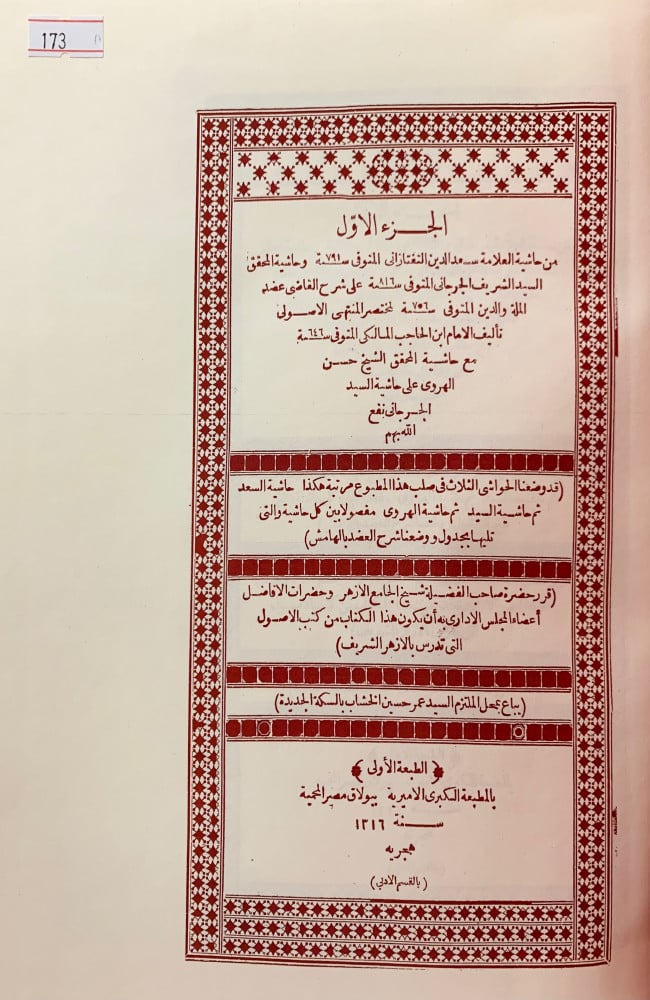 173
الجزء الاول
من حاشية العلامة سعد الدين التفتازانى المتوفى سنة ٧٩١ وحاشية المحقق
السيد الشريف الجرجانى المتوفى سنة ٨١٦ على شرح القاضى عضد
الملة والدين المتوفى سنة ٧٥٦ لمختصر المنتهى الاصولى
تأليف الامام ابن الحاجب المالكى المتوفى سنة ٦٤٦
مع حاشية المحقق الشيخ حسن
الهروى على حاشية السيد
الجرجانى نفع
الله بهم
(قد وضعنا الحواشى الثلاث فى صلب هذا المطبوع مرتبة هكذا حاشية السعد
ثم حاشية السيد ثم حاشية الهروى مفصولا بين كل حاشية والتى
تليها بجدول ووضعنا شرح العضد بالهامش)
(قرر حضرة صاحب الفضيلة شيخ الجامع الازهر وحضرات الافاضل
أعضاء المجلس الادارى به أن يكون هذا الكتاب من كتب الاصول
التى تدرس بالازهر الشريف)
(يباع بمحل الملتزم السيد عمر حسين الخشاب بالسكة الجديدة)
﴿الطبعة الأولى﴾
بالمطبعة الكبرى الاميرية ببولاق مصر المحمية
سنة ١٣١٦
هجريه
(بالقسم الادبى)